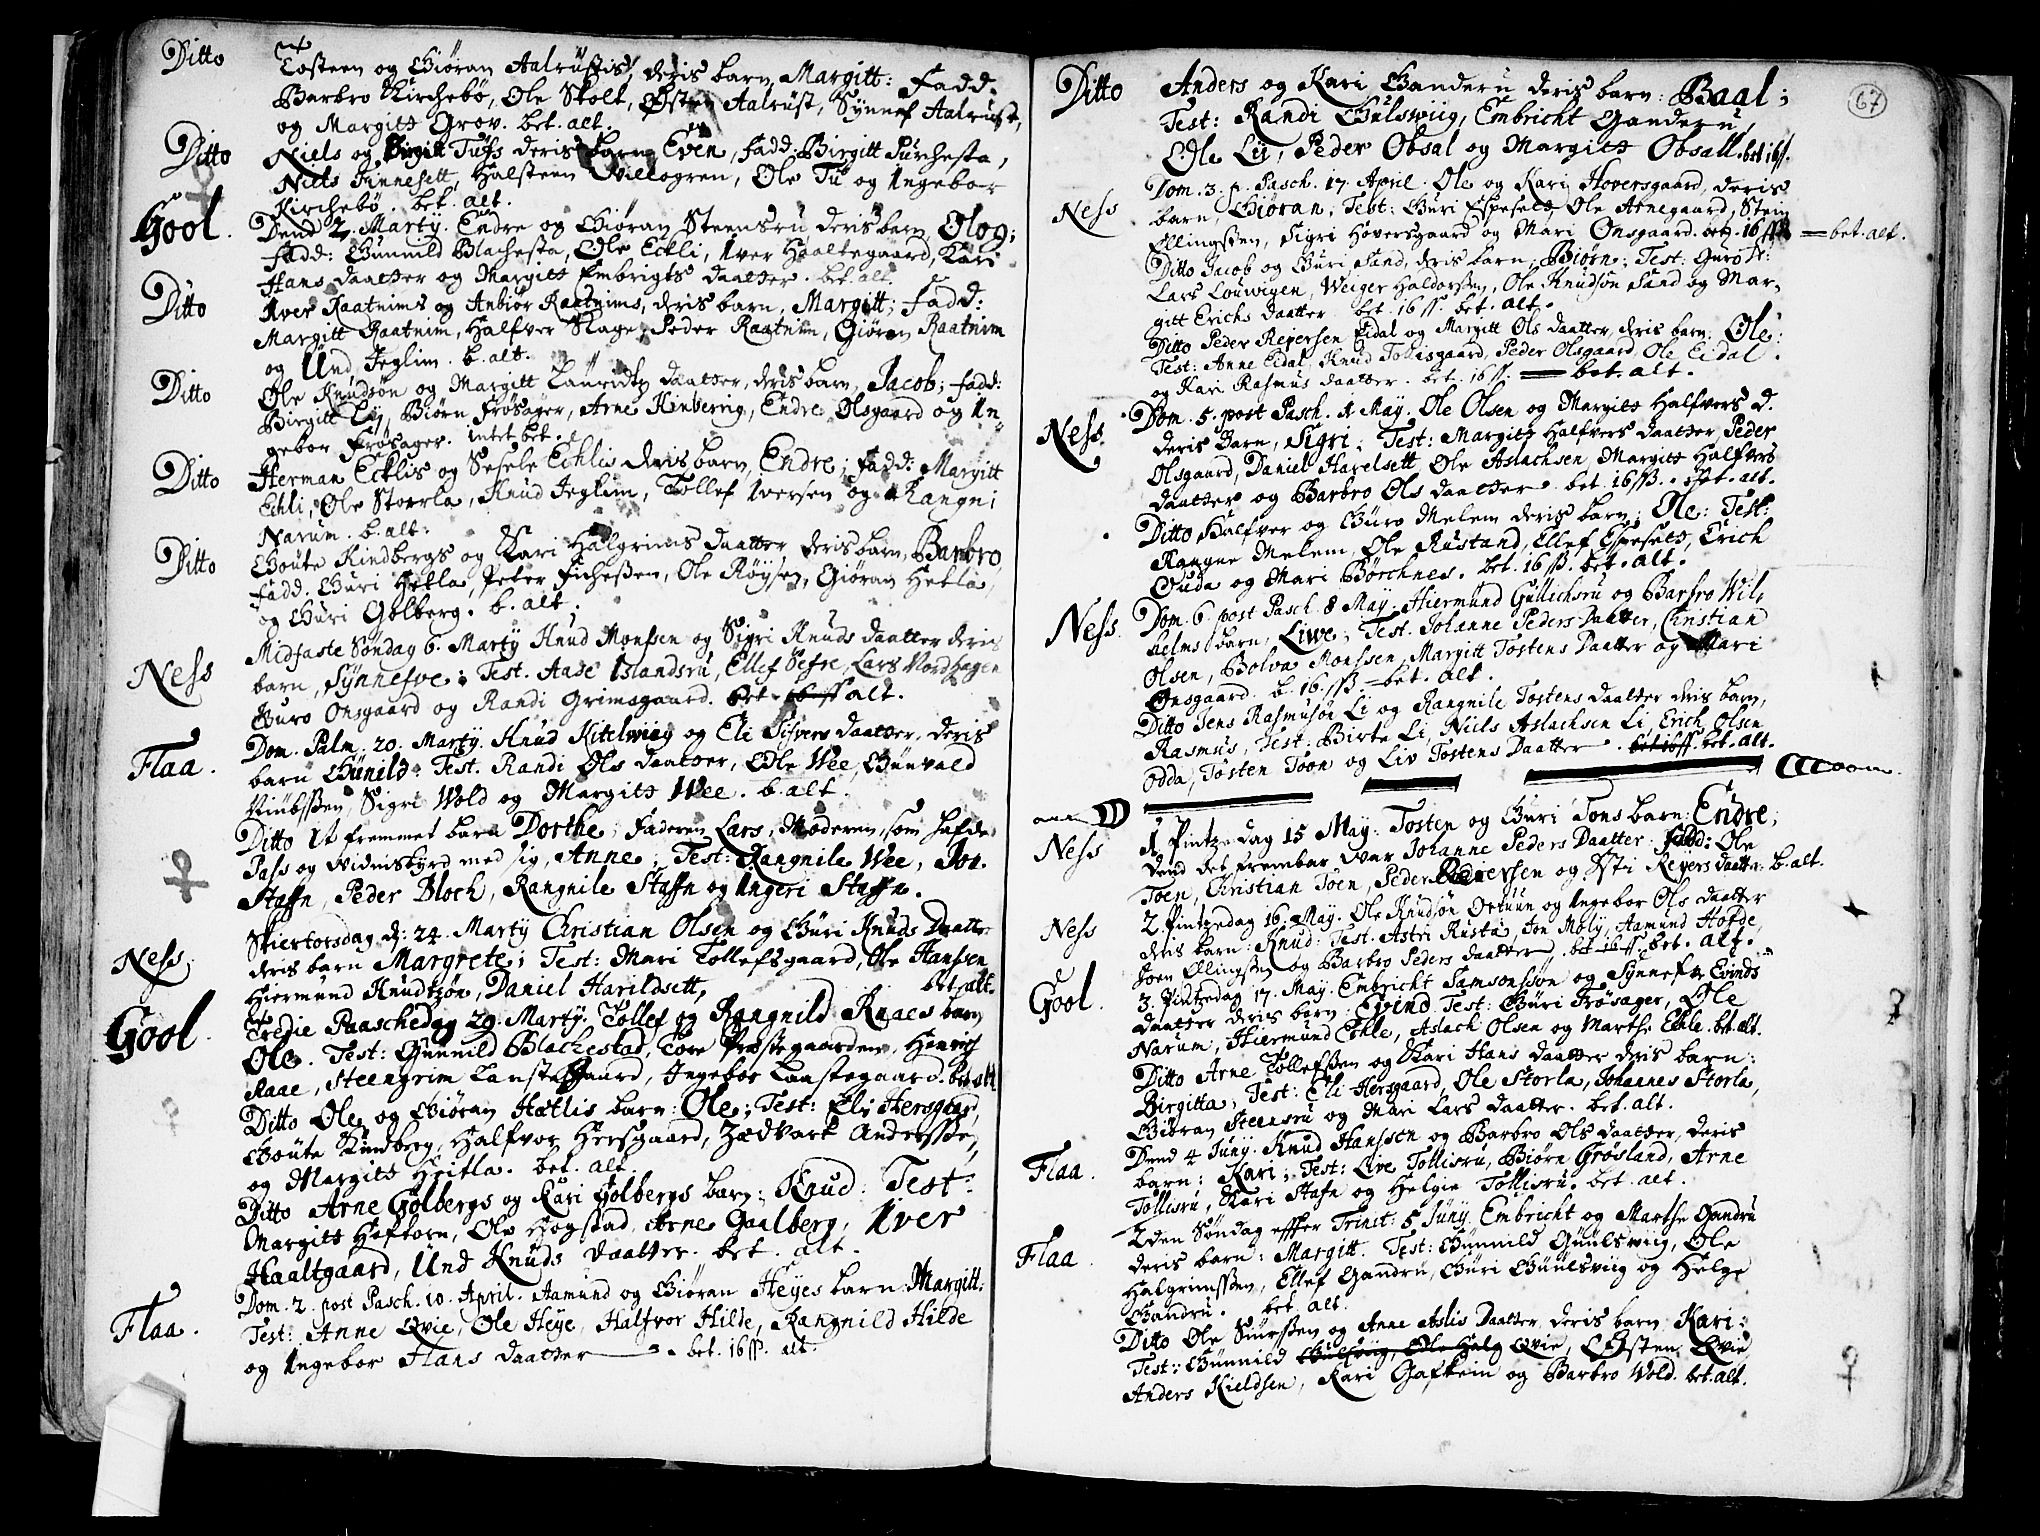 Ditto Tosteen og Giøran Aalrustis, deris barn, Margitt: Fadd.
Barbro Kirchebø, Ole Skolt, Østen Aalrust, Synnef Aalrust,
og Margitt Grov. bet. alt.
Ditto Niels og Birgit Tufs deris barn Even, fadd: Birgitt Purchesta,
Niels Finnesett, Halsteen Villogren, Ole Tu og Ingebor
Kirchebø. bet. alt.
Gool. Dend 2. Marty. Endre og Giøran Steensru deris barn, Olog;
fadd: Gunnild Blachesta, Ole Eckli, Iver Haaltegaard, Kari
Hans daatter og Margitt Embrigts daatter. bet. alt.
Ditto Iver Raatnims og Anbiør Raatnims, deris barn, Margitt; Fadd:
Margitt Raatnim, Halfver Slage, Peder Raatnim, Giøren Raatnim
og Und Jeglim. b. alt.
Ditto Ole Knudsøn og Margitt Lauridtz daatter, deris barn, Jacob; fadd:
Birgitt Ly, Biørn Frøsager, Arne Kinberrig, Endre Olsgaard og In-
gebor Frøsager. intet bet.
Ditto Herman Ecklis og Sesele Echlis deris barn, Endre; fadd: Margitt
Echli, Ole Storrla, Knud Jeglim, Tollef Iversen og Rangni
Narum. b. alt:
Ditto Goute Kindbergs og Kari Halgrims daatter, deris barn, Barbro,
fadd. Guri Hetla, Peter Ficheßen, Ole Røysen, Giøran Hetla,
og Guri Golberg. b. alt.
Ness Midfaste Søndag 6. Marty Knud Monssen og Sigri Knuds daatter deris
barn, Synnefve; Test. Aase Islandsru, Ellef Sefre, Lars Nordhagen
Guro Onsgaard og Randi Grimsgaard. bet. 16 ss alt.
Flaa. Dom. Palm. 20. Marty. Knud Kitelwiig og Eli Sifvers daatter, deris
barn Gunild: Test. Randi Ols daatter, Ole Wee, Gunvald
Sigri Wold og Margitt Wee. b. alt.
Ditto It fremmet barn Dorthe; Faderen Lars, Moderen, som hafde
Pass og vidnisbyrd med sig, Anne; Test: Rangnile Wee, Jon
Staffn, Peder Bloch, Rangnile Staffn og Ingeri Staffn.
Ness. Skiertorsdag d: 24. Marty Christian Olsen og Guri Knuds Daatter
deris barn Margrete; Test: Mari Tollefsgaard, Ole Hanssen
Hiermund Knudtzøn, Daniel Harildsett, bet. alt.
Gool Tredie Paaschedag 29. Marty. Tollef og Rangnild Ruaes barn
Ole. Test: Gunnild Blachestad, Tore Præstegaarden, Henrich
Raae, Steengrim Lanstegaard, Ingebor Laastegaard. bet. alt
Ditto Ole og Giøran Hætlis barn: Ole; Test: Eli Hersgaar,
Goute Kindberg, Halfvor Hersgaard, Zædvark Andersßen,
og Margitt Heitla. bet. alt.
Ditto Arne Golbergs og Kari Golbergs barn: Knud: Test:
Margitt Haftorn, Ole Høgstad, Arne Gaalberg, Iver
Haaltgaard, Und Knuds daatter. bet. alt.
Flaa. Dom. 2. post Pasch. 10. April. Aamund og Giøran Heyes barn Margitt:
Test: Anne Qvie, Ole Heye, Halfvor Hilde, Rangnild Hilde
og Ingebor Hans daatter. bet. 16 ss. alt.
67
Ditto Anders og Kari Ganderu deris barn: Baal;
Test: Randi Gulswiig, Embricht Ganderu,
Ole Ly, Peder Obsal og Margitt Obsall. bet 16 ss.
Ness Dom. 3. p. Pasch. 17. April. Ole og Kari Hoversgaard, deris
barn, Giøran; Test: Guri Espeset, Ole Arnegaard, Stein
Ellingßen, Sigri Hoversgaard og Mari Onsgaard. bet. 16 ss = bet. alt.
Ditto Jacob og Guri Sand, deris barn; Biørn; Test: Guro
Lars Louwigen, Weiger Haldorsßen, Ole Knudsøn Sand og Mar-
gitt Erichs daatter. bet 16 ss. bet. alt.
Ditto Peder Reiersen Eidal og Margitt Ols daatter, deris barn, Ole:
Test: Anne Eidal, Knud Tollisgaard, Peder Olsgaard, Ole Eidal
og Kari Rasmus daatter. bet. 16 ss. = bet. alt.
Ness. Dom. 5. post Pasch. 1. May. Ole Olsen og Margitt Halfvers d.
deris Barn, Sigri; Test: Margitt Halfvers daatter, Peder
Olsgaard, Daniel Harelsett, Ole Aslachsen, Margitt Halfvers
daatter og Barbro Ols daatter. bet. 16 ss. bet. alt.
Ditto Halfver og Guro Melem deris barn; Ole: Test:
Rangne Melem, Ole Rustand, Ellef Espesett, Erich
Ouda og Mari Børchnes. bet. 16 ss. bet. alt.
Ness. Dom. 6. post Pasch. 8 May. Hiermund Gullechsru og Barbro Wil,
helms barn, Liwe; Test. Johanne Peders Daatter, Christian
Olsen, Bolva Monssen, Margitt Tostens Daatter og Mari
Onsgaard. b. 16. ss. = bet. alt.
Ditto Jens Rasmusøn Li og Rangnile Tostens daatter deris barn,
Rasmus, Test: Birte Li, Niels Aslachsen Li, Erich Olsen
Odda, Tosten Toon og Liv Tostens Daatter. bet 16 ss. bet. alt.
Ness 1. Pintzedag 15 May. Tosten og Guri Tons barn: Endre;
Dend det frembar var Johanne Peders Daatter. fadd: Ole
Toen, Christian Toen, Peder Reiersen og Østi Reyers daatter. b. alt.
Ness 2. Pintzedag 16. May. Ole Knudsøn Ortuun og Ingebor Ols daatter
deris barn: Knud: Test. Astri Rusta, Jon Moly, Aamund Hofde,
Joen Ellingßen og Barbro Peders daatter, bet 16 ss. bet. alt.
Gool. 3. Pintzedag 17. May. Embricht Samsonsson og Synnefve Evinds
daatter deris barn: Evind. Test: Guri Frøsager, Ole
Narum, Hiermund Echle, Aslach Olsen og Marthe Echle. bet. alt.
Ditto Arne Tollefsßen og Kari Hans daatter deris barn:
Birgitta; Test: Eli Hersgaard, Ole Storla, Johannes Storla,
Giøran Steensru og Mari Lars daatter. bet. alt.
Flaa. Dend 4 Juny. Knud Hanssen og Barbro Ols daatter, deris
barn: Kari; Test: Live Tollisru, Biørn Grøsland, Arne
Tollisru, Kari Stafn og Helgie Tollisru. bet. alt.
Flaa 2den Søndag effter Trinit: 5 Juny. Embricht og Marthe Gandru
deris barn: Margitt. Test: Gunnild Guulsviig, Ole
Halgrimsßen, Ellef Gandru, Guri Guulsviig og Helge
Gandru. bet. alt.
Ditto Ole Snursßen og Anne Aslis Daatter, deris barn, Kari:
Test: Gunnild Gulsviig, Ole Halg Qvie, Østen Qvie,
Anders Kieldsen, Kari Gafkein og Barbro Wold. bet. alt.